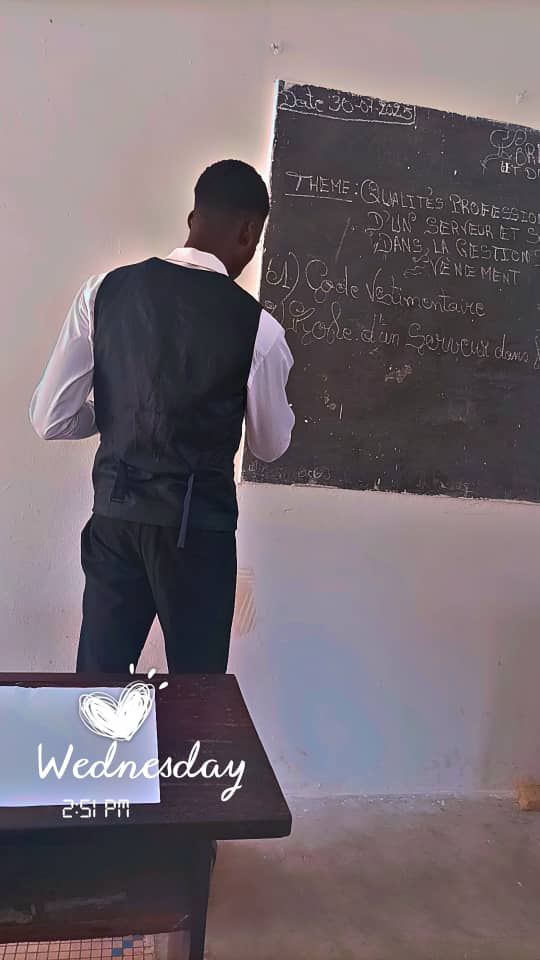 Date 30-07-2025
THEME: QUALITÉS PROFESSION
D'UN SERVEUR ET S
DANS LA GESTION
EVÈNEMENT
1) Code Vestimentaire
d'un Serveur dans
Wednesday
2:51 PM